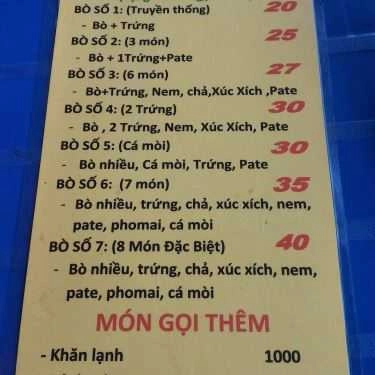 BÒ SỐ 1: (Truyền thống) 20
- Bò + Trứng
BÒ SỐ 2: (3 món) 25
- Bò + 1Trứng+Pate
BÒ SỐ 3: (6 món) 27
- Bò+Trứng, Nem, chả,Xúc Xích ,Pate
BÒ SỐ 4: (2 Trứng) 30
- Bò , 2 Trứng, Nem, Xúc Xích, Pate
BÒ SỐ 5: (Cá mòi) 30
- Bò nhiều, Cá mòi, Trứng, Pate
BÒ SỐ 6: (7 món) 35
- Bò nhiều, trứng, chả, xúc xích, nem,
pate, phomai, cá mòi
BÒ SỐ 7: (8 Món Đặc Biệt) 40
- Bò nhiều, trứng, chả, xúc xích, nem,
pate, phomai, cá mòi
MÓN GỌI THÊM
- Khăn lạnh 1000